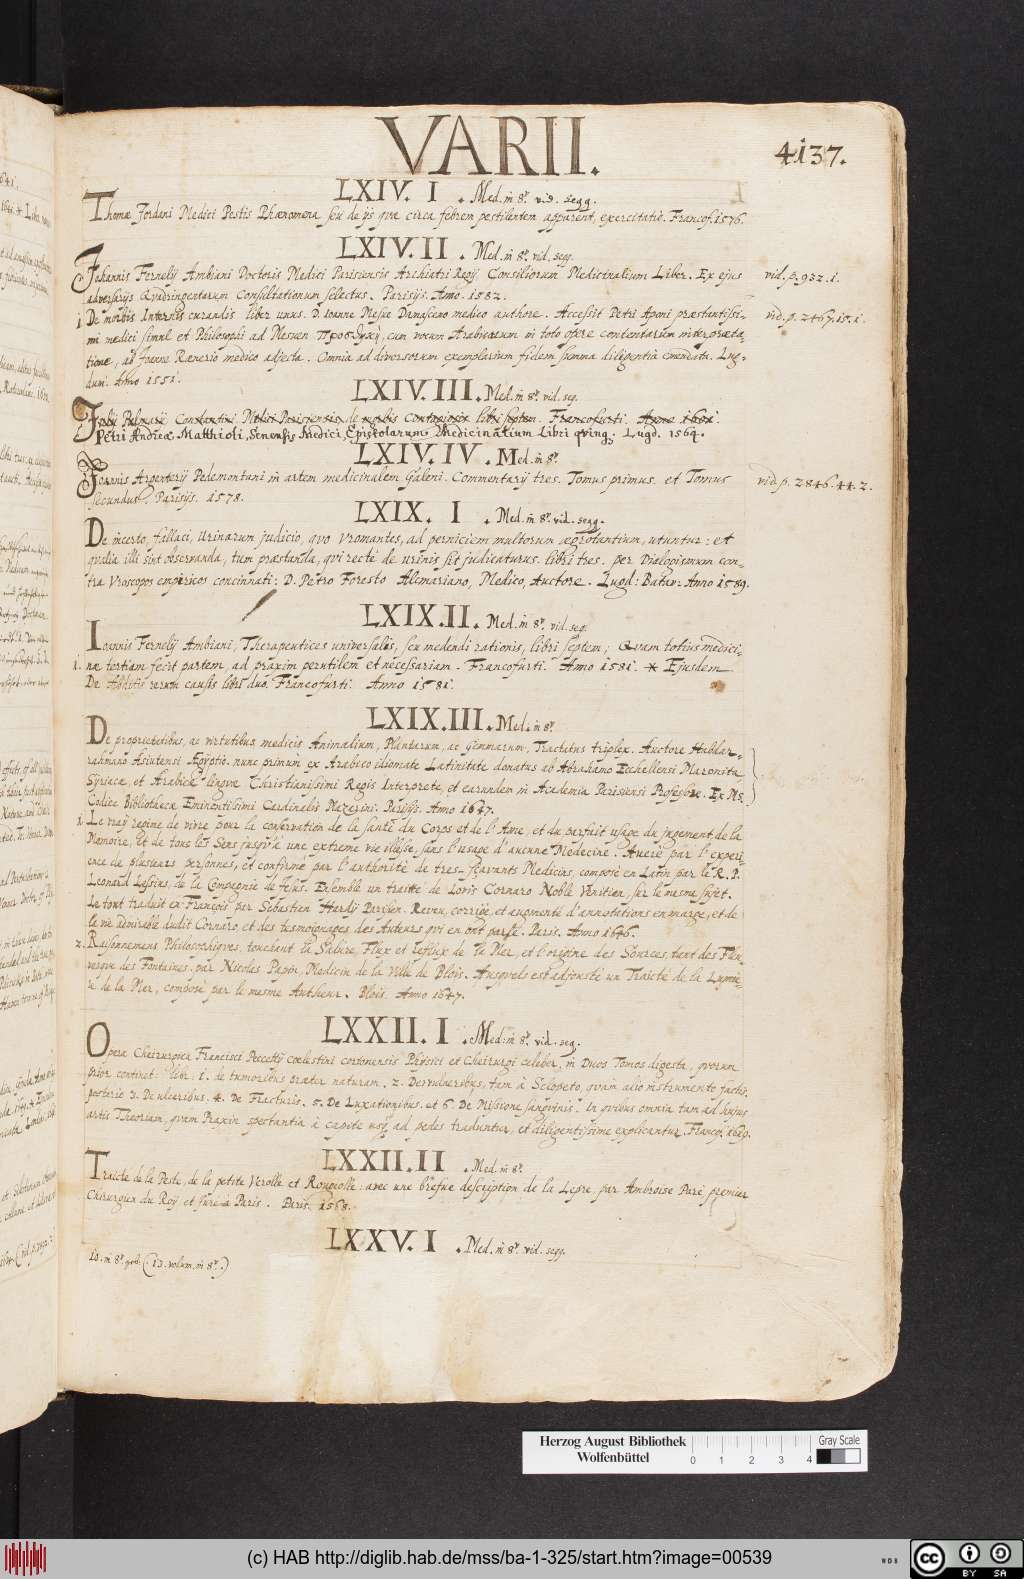 VARII.
4137.
LXIV. I . Med. in 8º. vid. segg.
Thomæ Jordani Medici Pestis Phænomena seu de ijs quæ circa febrem pestilentem apparent, exercitatio. Francof. 1576.
LXIV. II . Med. in 8º. vid. segg.
Johannis Fernelij Ambiani Doctoris Medici Parisiensis Archiatri Regij Consiliorum Medicinalium Liber. Ex ejus
vid. p. 932. 1.
adversarijs Quadringentarum Consultationum selectus. Parisijs. Anno. 1582.
1 De morbis Internis curandis liber unus. D. Ioanne Mesue Damasceno medico authore. Accessit Petri Aponi præstantissi-
vid. p. 2467. 15. 1.
mi medici simul et Philosophi ad Mesuen προσθήκη, cum vocum Arabicarum in toto opere contentarum interpræta-
tione, ab Joanne Rænerio medico adjecta. Omnia ad diversorum exemplarium fidem summa diligentia emendata. Lug-
duni. Anno 1551.
LXIV. III. Med. in 8º. vid. seg.
Julij Palmarij Constantini Medici Parisiensis de morbis Contagiosis libri septem. Francofurti. Anno 1601.
Petri Andreæ Matthioli, Senensis Medici, Epistolarum Medicinalium Libri qving; Lugd. 1564.
LXIV. IV . Med. in 8º.
Joannis Argenterij Pedemontani in artem medicinalem Galeni. Commentarij tres. Tomus primus. et Tomus
vid. p. 2846. 44. 2.
secundus. Parisijs. 1578.
LXIX. I . Med. in 8º. vid. segg.
De incerto, fallaci, Urinarum judicio, quo Vromantes, ad perniciem multorum ægrotantium, utuntur: et
qvalia illi sint observanda, tum præstanda, qvi recte de urinis sit judicaturus. libri tres. per Dialogismum con-
tra Vroscopos empiricos concinnati: D. Petro Foresto Alcmariano, Medico, Auctore. Lugd: Batav: Anno 1589.
LXIX. II . Med. in 8º. vid. seg.
Ioannis Fernelij Ambiani, Therapeutices universalis, seu medendi rationis, libri septem; Quam totius medici-
1. næ tertiam fecit partem, ad praxim perutilem et necessariam. Francofurti. Anno 1581. * Ejusdem
De Abditis rerum causis libri duo. Francofurti. Anno 1581.
LXIX. III. Med. in 8º.
De proprietatibus, ac virtutibus medicis Animalium, Plantarum, ac Gemmarum, Tractatus triplex. Auctore Habdar-
rahmano Asiutensi Ægyptio. nunc primum ex Arabico idiomate Latinitate donatus ab Abrahamo Ecchellensi Maronita
Syriacæ, et Arabicæ lingvæ Christianissimi Regis Interprete, et earundem in Academia Parisiensi Professore. Ex Ms.
Codice Bibliothecæ Eminentissimi Cardinalis Mazerini. Parisijs. Anno 1647.
1. Le vray regime de vivre pour la conservation de la santé du Corps et de l'Ame, et du parfait usage du jugement de la
Memoire, et de tous les Sens jusqu'à une extreme vieillesse, sans l'usage d'aucune Medecine. Averé par l'experi-
ence de plusieurs personnes, et confirmé par l'authorité de tres-sçavants Medecins, composé en Latin par le R. P.
Leonard Lessius, de la Compagnie de Jesus. Ensemble un traité de Loris Cornaro Noble Venitien, sur le mesme sujet.
Le tout traduit en François par Sebastien Hardy Parisien. Reveu, corrigé, et augmenté d'annotations en marge, et de
la vie admirable dudit Cornaro, et des tesmoignages des Auteurs qui en ont parlé. Paris. Anno 1646.
2. Raisonnemens Philosophiques, touchant la Salure, Flux et reflux de la Mer, et l'origine des Sources, tant des Fleu-
ves que des Fontaines. par Nicolas Papin, Medecin de la Ville de Blois. Ausquels est adjousté un Traicté de la Lumie-
re de la Mer, composé par le mesme Autheur. Blois. Anno 1647.
LXXII. I . Med. in 8º. vid. seg.
Opera Cheirurgica Francisci Peccetij coelestini cortonensis Physici et Cheirurgi celeber. in Duos Tomos digesta, qvorum
prior continet: liber. 1. de tumoribus præter naturam. 2. De vulneribus, tam à Sclopeto, qvam alio instrumento factis.
posterio 3. De ulceribus. 4. De Fracturis. 5. De Luxationibus. et 6. De Missione sangvinis. In qvibus omnia tam ad hujus
artis Theoriam, qvam Praxin spectantia à capite usq. ad pedes traduntur, et diligentissime explicantur. Francof. 1619.
LXXII. II . Med. in 8º.
Traicté de la Peste, de la petite Verolle et Rougeolle: avec une brefve description de la Lepre. par Ambroise Paré premier
Chirurgien du Roy et juré à Paris. Paris. 1568.
LXXV. I . Med. in 8º. vid. segg.
Herzog August Bibliothek
Wolfenbüttel
0 1 2 3 4
Gray Scale
(c) HAB http://diglib.hab.de/mss/ba-1-325/start.htm?image=00539
WDB
cc BY SA